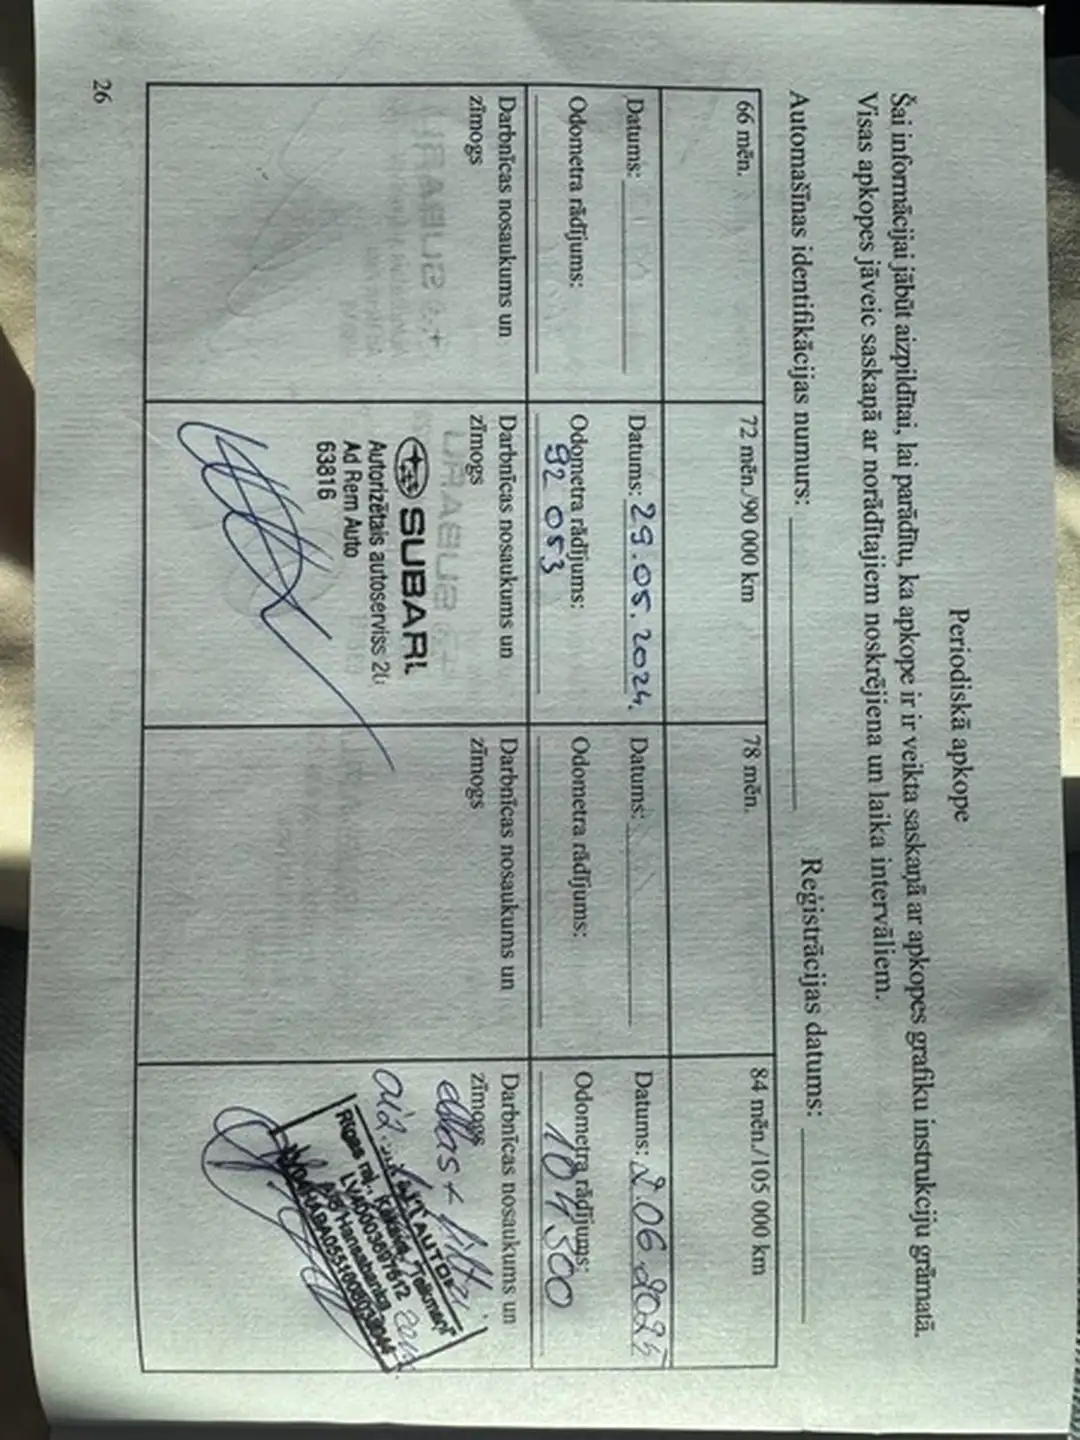 Periodiskā apkope
Šai informācijai jābūt aizpildītai, lai parādītu, ka apkope ir ir veikta saskaņā ar apkopes grafiku instrukciju grāmatā.
Visas apkopes jāveic saskaņā ar norādītajiem noskrējiena un laika intervāliem.
Automašīnas identifikācijas numurs:
Reģistrācijas datums:
66 mēn.
Datums:
Odometra rādījums:
Darbnīcas nosaukums un
zīmogs
72 mēn./90 000 km
Datums: 29.05.2024.
Odometra rādījums:
92 053
Darbnīcas nosaukums un
zīmogs
SUBARU
Autorizētais autoserviss
Ad Rem Auto
63816
78 mēn.
Datums:
Odometra rādījums:
Darbnīcas nosaukums un
zīmogs
84 mēn./105 000 km
Datums: 2.06.2025
Odometra rādījums:
104300
Darbnīcas nosaukums un
zīmogs
eļļas + filtri
Rīgas raj.,
26